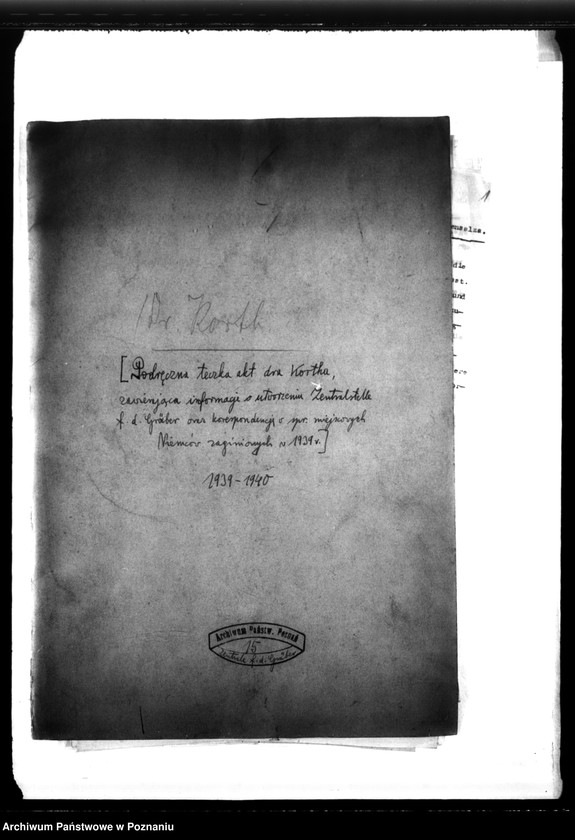 Dr. Korth
[Podręczna teczka akt dra Kortha,
zawierająca informacje o utworzeniu Zentralstelle
f. d. Gräber oraz korespondencję o spr. miejscowych
Niemców zaginionych w 1939 r.]
1939-1940
Archiwum Państw. Poznań
15
Zentrale f. d. Gräber
Archiwum Państwowe w Poznaniu